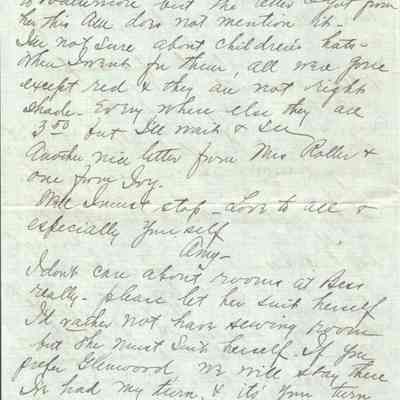 to Baltimore but the letter I got from
her this AM does not mention it -
I'm not sure about children's hats -
When I went for them, all were gone
except red & they are not right
shade - Every where else they are
3.50 but I'll wait & see
Another nice letter from Mrs Roller &
one from Ivy.
Well I must stop - Love to all &
especially yourself
Amy -
I dont care about rooms at Bess
really - please let her suit herself
I'd rather not have sewing room
but she must suit herself. If you
prefer Glenwood we will stay there
I've had my turn, & it's your turn